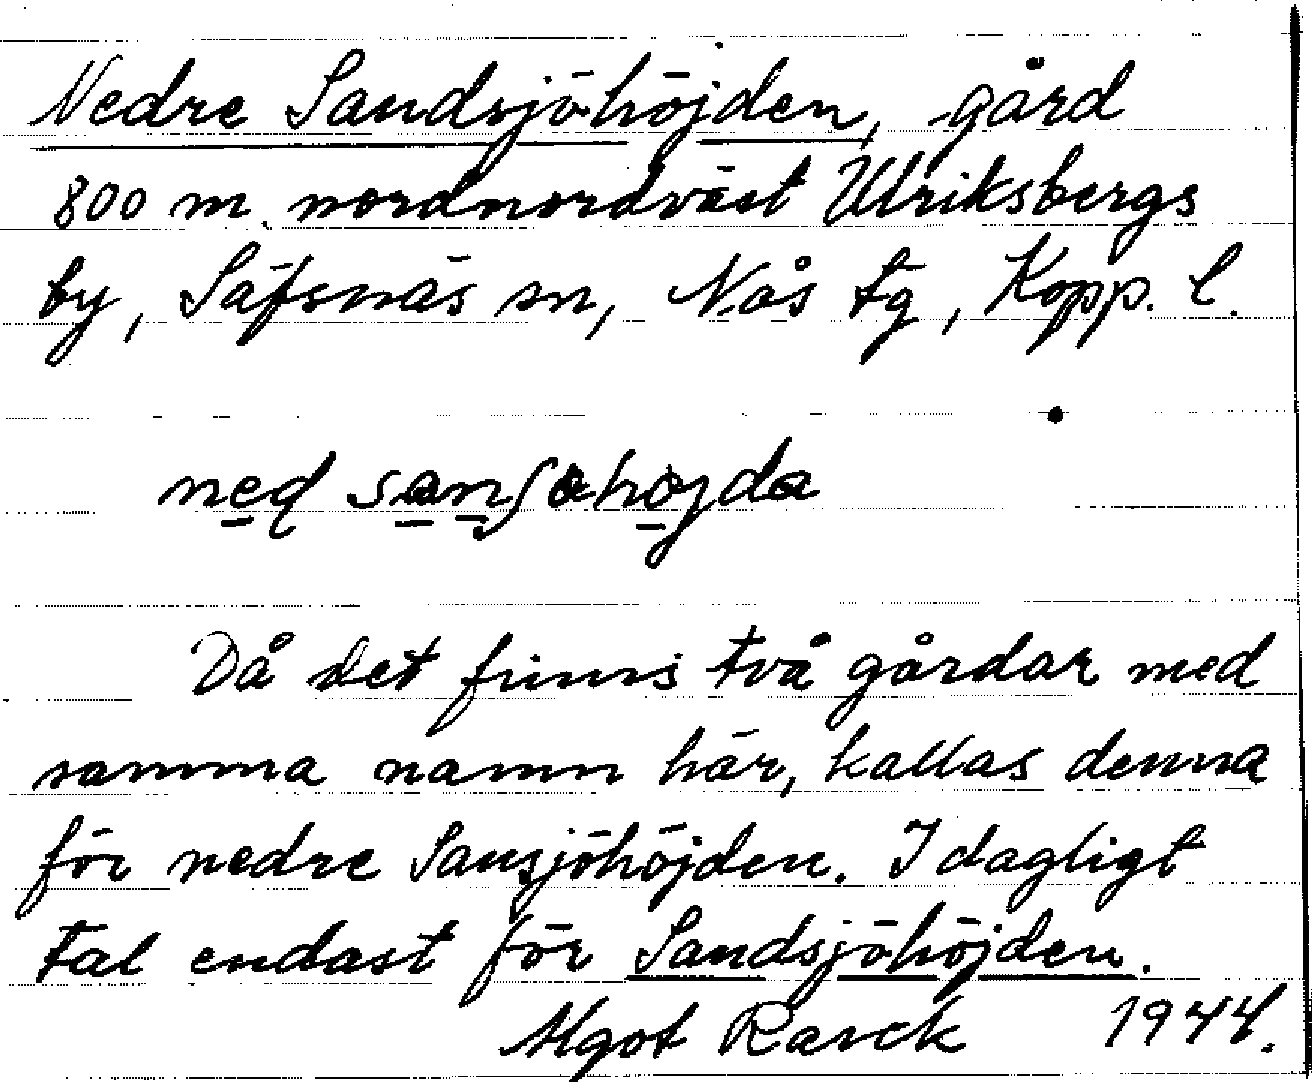 Nedre Sandsjöhöjden, gård
800 m. nordnordväst Ulriksbergs
by, Säfsnäs sn, Nås tg, Kopp. l.
Då det finns två gårdar med
samma namn här, kallas denna
för nedre Sansjöhöjden. I dagligt
tal endast för Sandsjöhöjden.
Algot Rasck 1944.